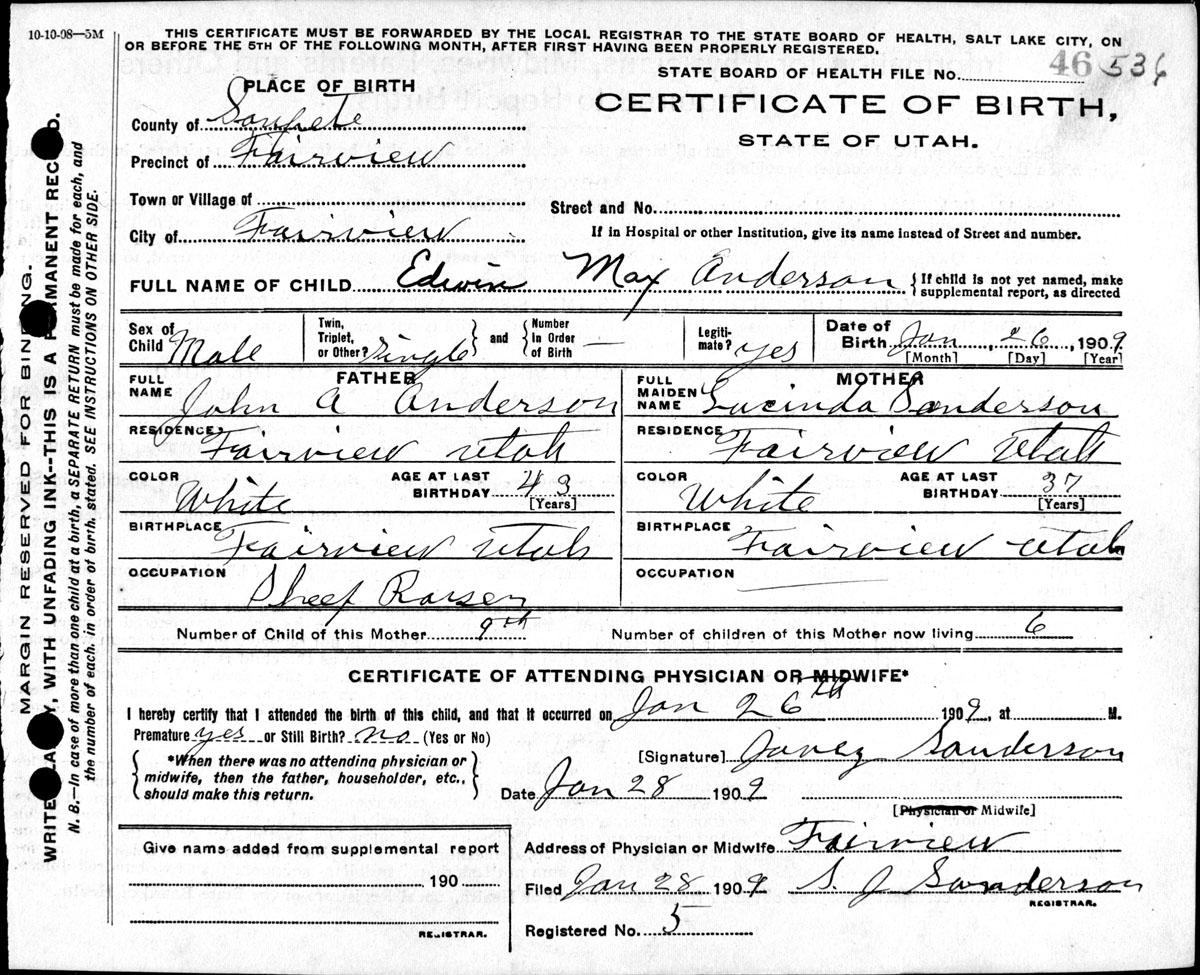 10-10-08—5M
THIS CERTIFICATE MUST BE FORWARDED BY THE LOCAL REGISTRAR TO THE STATE BOARD OF HEALTH, SALT LAKE CITY, ON
OR BEFORE THE 5TH OF THE FOLLOWING MONTH, AFTER FIRST HAVING BEEN PROPERLY REGISTERED.
STATE BOARD OF HEALTH FILE No. 46 536
PLACE OF BIRTH
CERTIFICATE OF BIRTH,
STATE OF UTAH.
County of Sanpete
Precinct of Fairview
Town or Village of
Street and No.
City of Fairview
If in Hospital or other Institution, give its name instead of Street and number.
FULL NAME OF CHILD Edwin Max Anderson {If child is not yet named, make
supplemental report, as directed
Sex of Child Male
Twin, Triplet, or Other? single } and { Number In Order of Birth —
Legiti-mate? yes
Date of Birth Jan 26, 1909
[Month] [Day] [Year]
FATHER
FULL NAME John A Anderson
MOTHER
FULL MAIDEN NAME Lucinda Sanderson
RESIDENCE Fairview Utah
RESIDENCE Fairview Utah
COLOR White AGE AT LAST BIRTHDAY 43 [Years]
COLOR White AGE AT LAST BIRTHDAY 37 [Years]
BIRTHPLACE Fairview Utah
BIRTHPLACE Fairview Utah
OCCUPATION Sheep Raiser
OCCUPATION
Number of Child of this Mother 9th
Number of children of this Mother now living 6
CERTIFICATE OF ATTENDING PHYSICIAN OR MIDWIFE*
I hereby certify that I attended the birth of this child, and that it occurred on Jan 26th 1909, at M.
Premature yes or Still Birth? no (Yes or No)
{ *When there was no attending physician or
midwife, then the father, householder, etc.,
should make this return. }
[Signature] Sanderson
Date Jan 28 1909
[Physician or Midwife]
Give name added from supplemental report
190
REGISTRAR.
Address of Physician or Midwife Fairview
Filed Jan 28 1909 S. J Sanderson
REGISTRAR.
Registered No. 5
MARGIN RESERVED FOR BINDING.
WRITE LA Y, WITH UNFADING INK--THIS IS A MANENT REC D.
N. B.—In case of more than one child at a birth, a SEPARATE RETURN must be made for each, and
the number of each, in order of birth, stated. SEE INSTRUCTIONS ON OTHER SIDE.